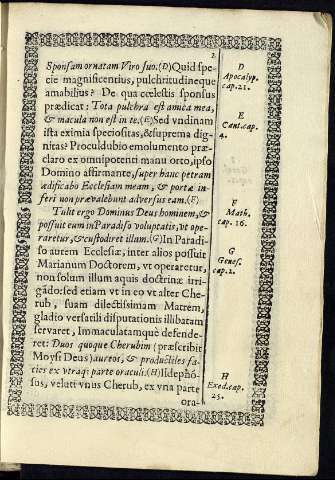 Sponsam ornatam Viro suo.(D)Quid spe-
cie magnificentius, pulchritudineque
amabilius? De qua cœlestis sponsus
prædicat: Tota pulchra est amica mea,
& macula non est in te.(E)Sed vndinam
ista eximia speciositas, & suprema dig-
nitas? Proculdubio emolumento præ-
claro ex omnipotenti manu orto, ipso
Domino affirmante, super hanc petram
ædificabo Ecclesiam meam, & portæ in-
feri non prævalebunt adversus eam.(F)
Tulit ergo Dominus Deus hominem, &
possuit eum in Paradiso voluptatis, vt ope-
raretur, & custodiret illum.(G)In Paradi-
so autem Ecclesiæ, inter alios possuit
Marianum Doctorem, vt operaretur,
non solum illum aquis doctrinæ irri-
gãdo: sed etiam vt in eo vt alter Che-
rub, suam dilectissimam Matrem,
gladio versatili disputationis illibatam
servaret, Immaculatamquè defende-
ret: Duos quoque Cherubim (præscribit
Moysi Deus) aureos, & productiles fa-
cies ex vtraq; parte oraculi.(H)Ildephõ-
sus, veluti vnus Cherub, ex vna parte
ora-
D
Apocalyp.
cap.21.
E
Cant.cap.
4.
F
Math.
cap. 16.
G
Genes.
cap.2.
H
Exod.cap.
25.